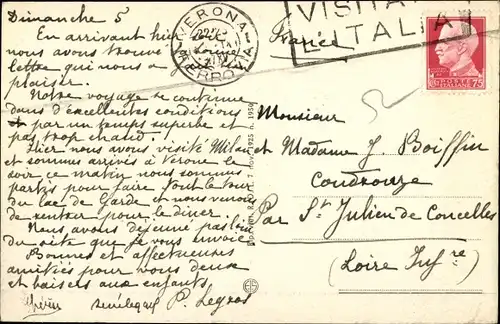 Dimanche 5
En arrivant hier
nous avons trouvé
lettre qui nous a
plaisir.
Notre voyage se continue
dans d'excellentes conditions
par un temps superbe et
pas trop chaud!
Hier nous avons visité Milan
et sommes arrivés à Verone le
soir ce matin nous sommes
partis pour faire tout le tour
du lac de Garde et nous venons
de rentrer pour le diner.
Nous avons déjeuné pas loin
du site que je vous envoie
Bonnes et affectueuses
amitiés pour vous deux
et baisers aux enfants
P. Legros
VERONA
FERROVIA
VISITA
ITALIA
France
75
Monsieur
et Madame J. Boiffin
Par St Julien de Concelles
(Loire Infre)